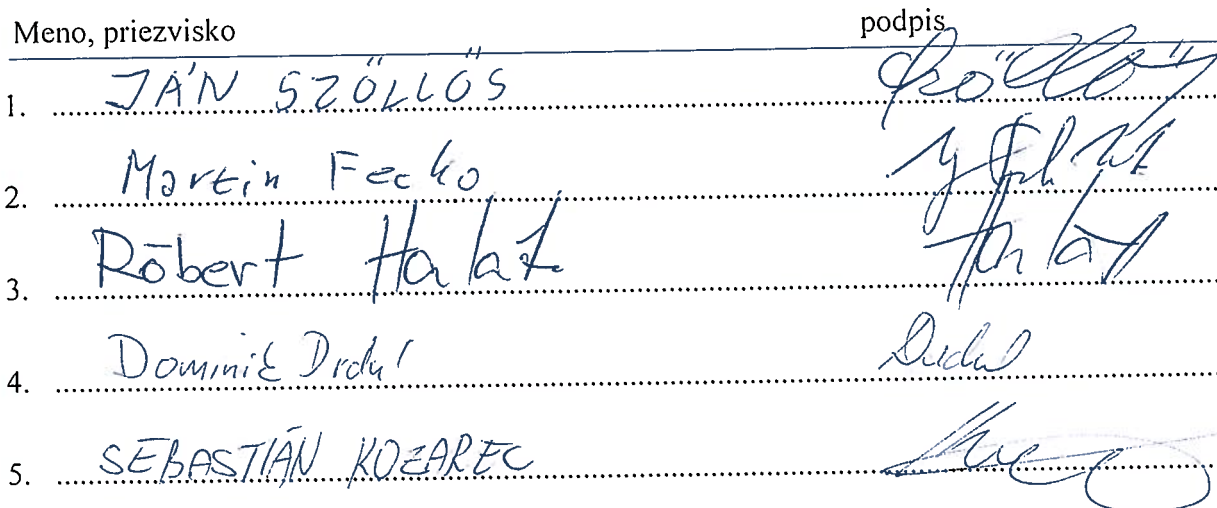 Meno, priezvisko podpis
1. JÁN SZŐLLŐS Szőllős
2. Martin Fecko
3. Róbert Halát Halát
4. Dominik
5. SEBASTIÁN KOZAREC